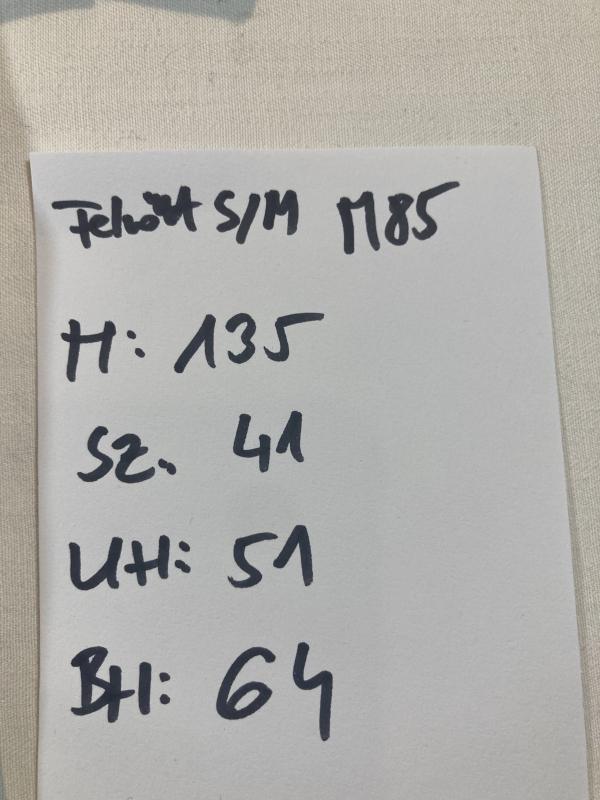 S/M M85
H: 135
SZ. 41
UH: 51
BH: 64